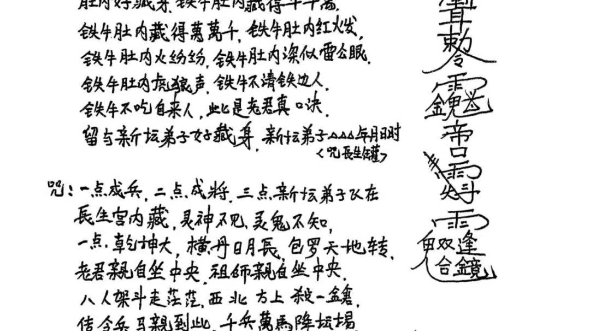 肚内好藏身.铁牛肚内藏得千千萬.
铁牛肚内藏得萬萬千,铁牛肚内红火发,
铁牛肚内火纷纷,铁牛肚内深似雷公眠.
铁牛肚内虎狼声.铁牛不清铁边人.
铁牛不吃自来人,此是老君真口诀.
留与新坛弟子好藏身.新坛弟子△△△年月日时
<咒長生罐>
咒:一点成兵,二点成将.三点新坛弟子口在
長生宫内藏,見神不見.灵鬼不知,
一点.乾坤大,横丹日月長,包罗天地转,
老君親自坐中央.祖師親自坐中央.
八人架斗走茫茫.西北方上殺一
传令兵马親到此,千兵萬馬降坛場.
敕令
雙逢
合鏡